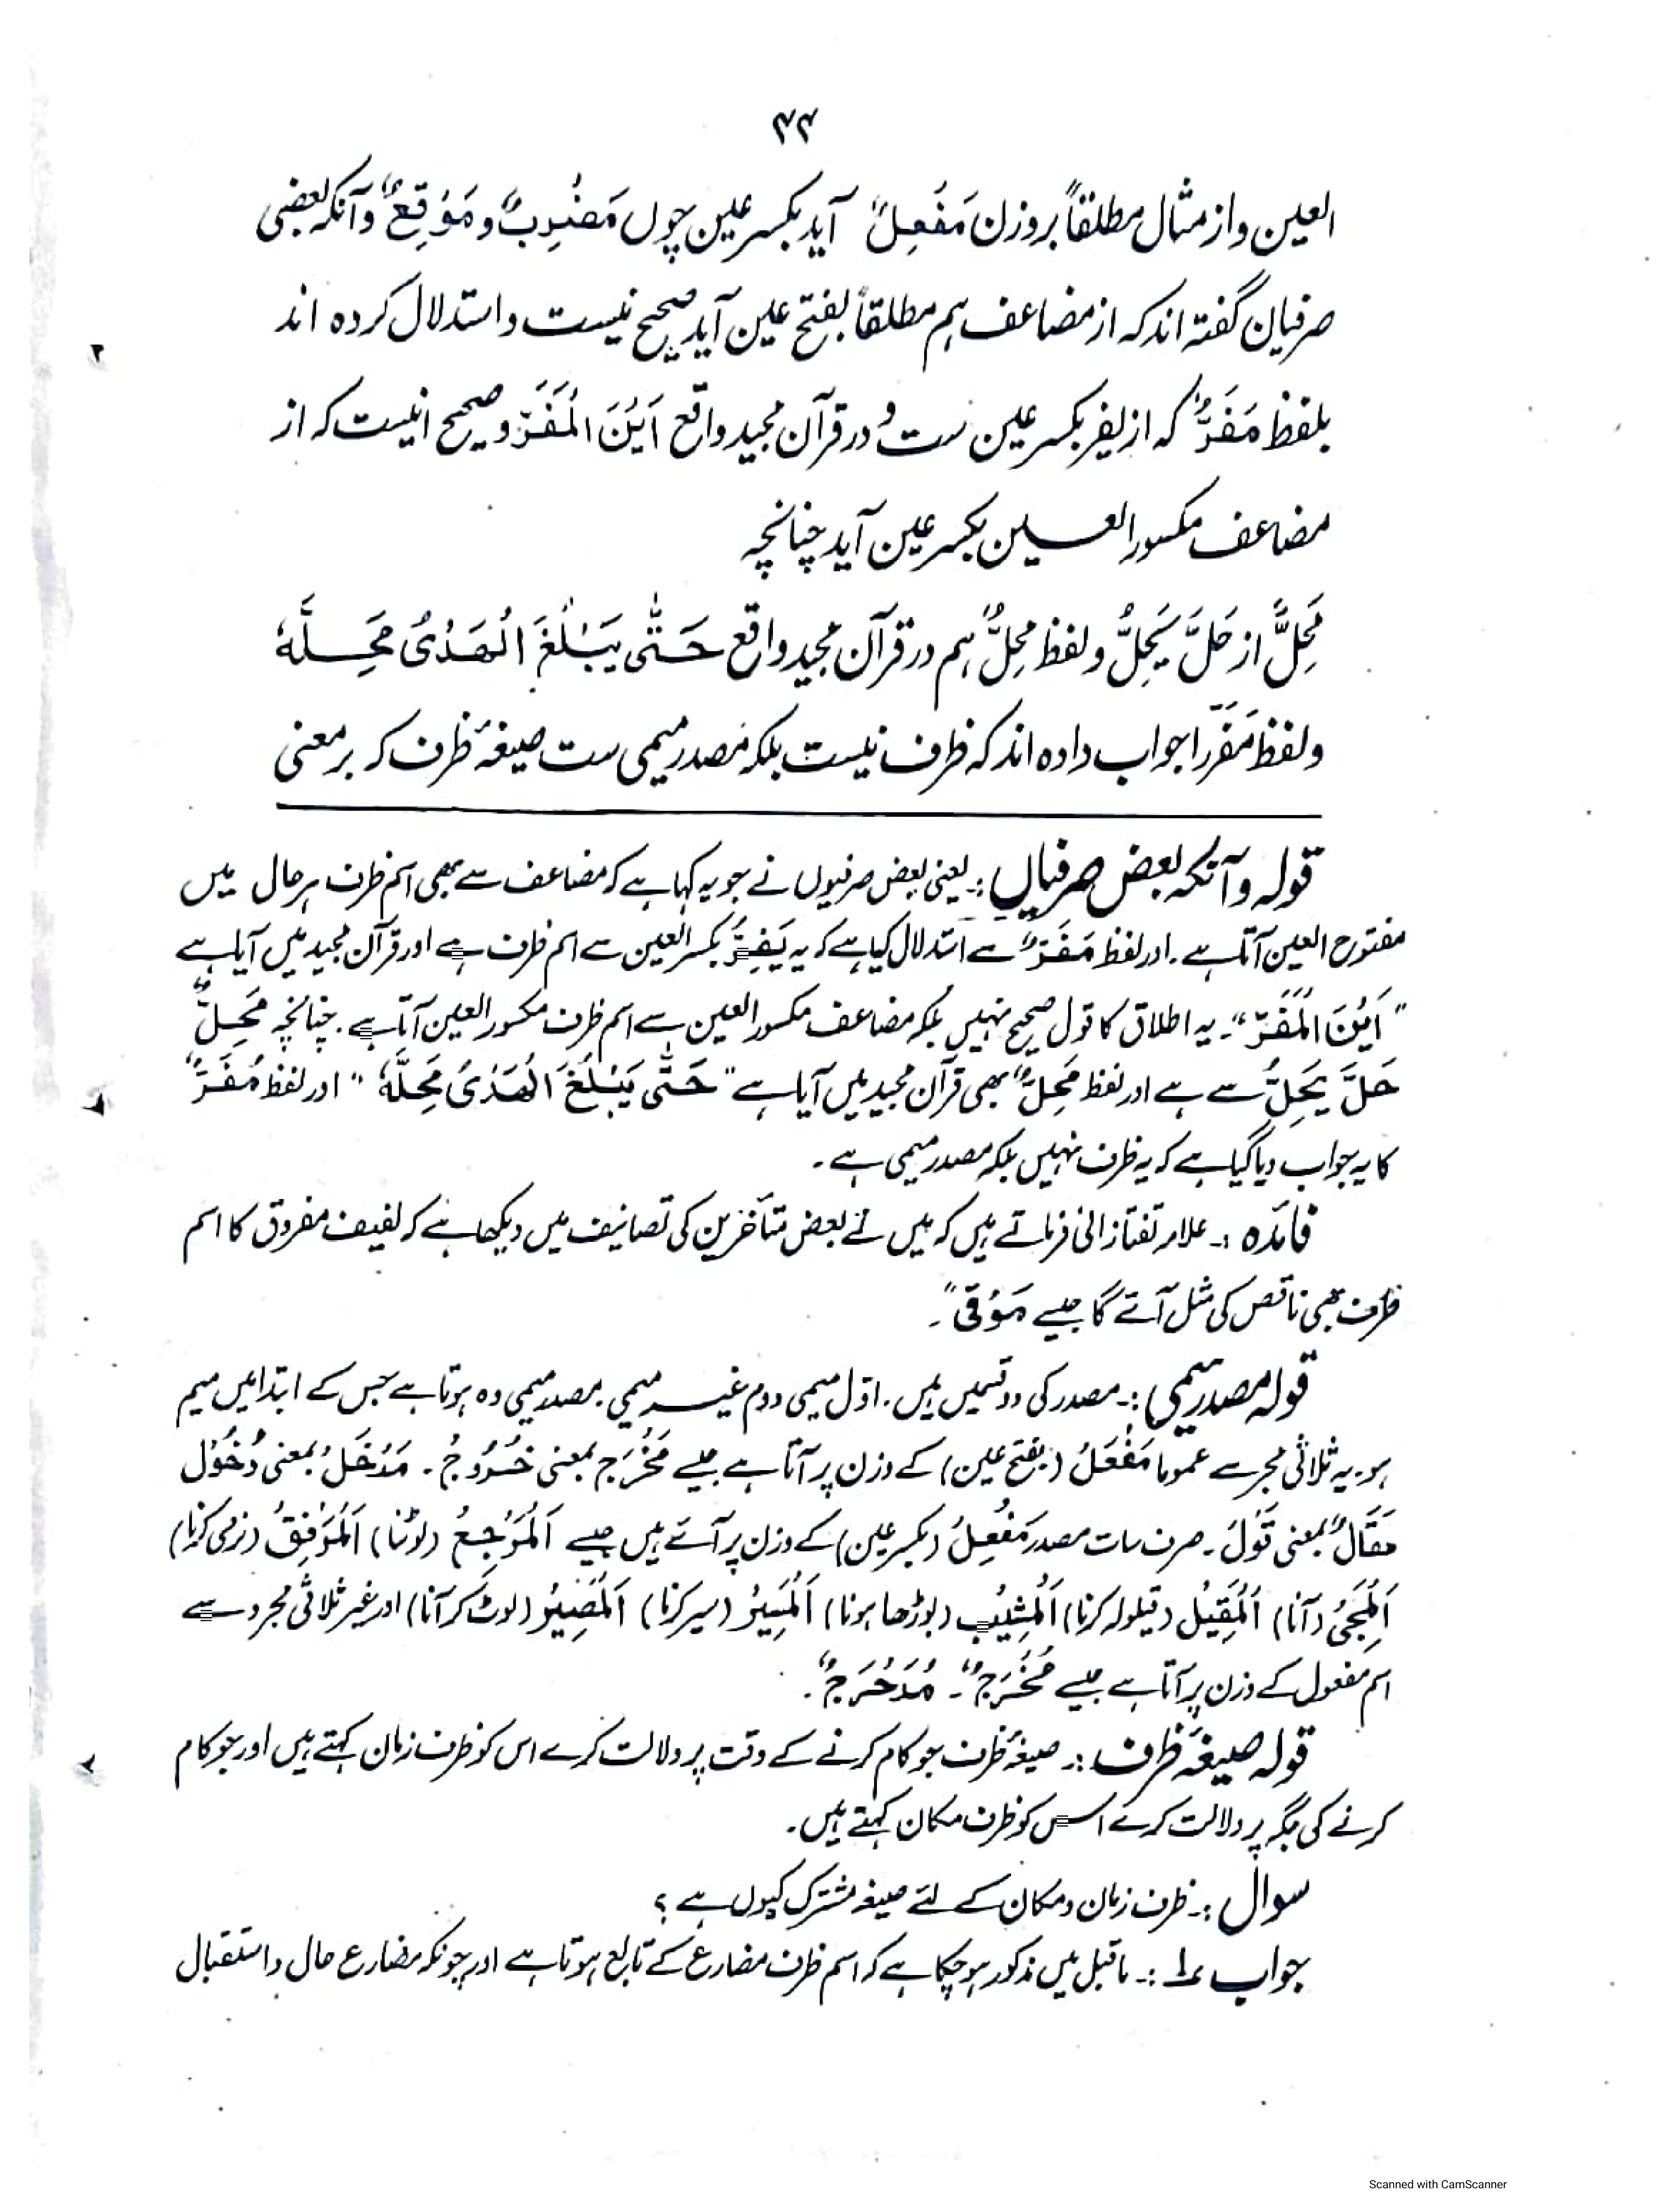 ۴۴
العین و از مثال مطلقاً بروزن مَفْعِلٌ آید بکسر عین چوں مَضْرِبٌ و مَوْقِعٌ و آنکہ بعضی
صرفیان گفتہ اند کہ از مضاعف ہم مطلقاً بفتح عین آید صحیح نیست و استدلال کردہ اند
بلفظ مَفَرٌّ کہ از یفر بکسر عین ست و در قرآن مجید واقع اَیْنَ الْمَفَرّ و صحیح انیست کہ از
مضاعف مکسور العین بکسر عین آید چنانچہ
مَحِلٌّ از حَلَّ یَحِلُّ و لفظ مَحِلٌّ ہم در قرآن مجید واقع حَتّٰی یَبْلُغَ الْھَدْیُ مَحِلَّہٗ
و لفظ مَفَرّ را جواب دادہ اند کہ ظرف نیست بلکہ مصدر میمی ست صیغۂ ظرف کہ بر معنی
قولہ و آنکہ بعض صرفیاں :۔ یعنی بعض صرفیوں نے جو یہ کہا ہے کہ مضاعف سے بھی اسم ظرف ہر حال میں
مفتوح العین آتا ہے ۔ اور لفظ مَفَرٌّ سے استدلال کیا ہے کہ یہ یَفِرُّ بکسر العین سے اسم ظرف ہے اور قرآن مجید میں آیا ہے
"اَیْنَ الْمَفَرّ"۔ یہ اطلاق کا قول صحیح نہیں بلکہ مضاعف مکسور العین سے اسم ظرف مکسور العین آتا ہے ۔ چنانچہ مَحِلٌّ
حَلَّ یَحِلُّ سے ہے اور لفظ مَحِلٌّ بھی قرآن مجید میں آیا ہے "حَتّٰی یَبْلُغَ الْھَدْیُ مَحِلَّہٗ" اور لفظ مَفَرٌّ
کا یہ جواب دیا گیا ہے کہ یہ ظرف نہیں بلکہ مصدر میمی ہے ۔
فائدہ :۔ علامہ تفتازانی فرماتے ہیں کہ میں نے بعض متأخرین کی تصانیف میں دیکھا ہے کہ لفیف مفروق کا اسم
ظرف بھی ناقص کی مثل آئے گا جیسے مَوْقًی ۔
قولہ مصدر میمی :۔ مصدر کی دو قسمیں ہیں ۔ اوّل میمی دوم غیر میمی ۔ مصدر میمی وہ ہوتا ہے جس کے ابتدا میں میم
ہو ۔ یہ ثلاثی مجرد سے عموما مَفْعَلٌ (بفتح عین) کے وزن پر آتا ہے جیسے مَخْرَج بمعنی خُرُوجٌ ۔ مَدْخَلٌ بمعنی دُخُوْل
مَقَالٌ بمعنی قَوْلٌ ۔ صرف سات مصدر مَفْعِلٌ (بکسر عین) کے وزن پر آتے ہیں جیسے اَلْمَرْجِعُ (لوٹنا) اَلْمَرْفِقُ (نرمی کرنا)
اَلْمَجِیْءُ (آنا) اَلْمَقِیْلُ (قیلولہ کرنا) اَلْمَشِیْبُ (بوڑھا ہونا) اَلْمَسِیْرُ (سیر کرنا) اَلْمَصِیْرُ (لوٹ کر آنا) اور غیر ثلاثی مجرد سے
اسم مفعول کے وزن پر آتا ہے جیسے مُخْرَجٌ ۔ مُدَحْرَجٌ ۔
قولہ صیغۂ ظرف :۔ صیغۂ ظرف جو کام کرنے کے وقت پر دلالت کرے اس کو ظرف زمان کہتے ہیں اور جو کام
کرنے کی جگہ پر دلالت کرے اس کو ظرف مکان کہتے ہیں ۔
سوال :۔ ظرف زمان و مکان کے لئے صیغہ مشترک کیوں ہے ؟
جواب ۱ :۔ ماقبل میں مذکور ہو چکا ہے کہ اسم ظرف مضارع کے تابع ہوتا ہے اور چونکہ مضارع حال و استقبال
Scanned with CamScanner